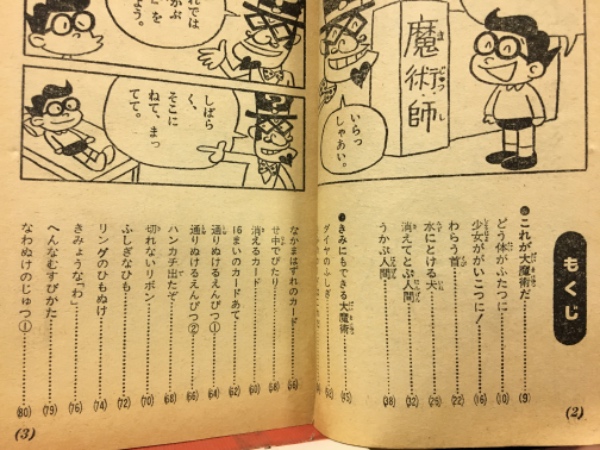 魔術師
いらっ
しゃあい。
れでは
がぶ
を
ょう。
しばら
く、
そこに
ねて、まっ
てて。
もくじ
これが大魔術だ (9)
どう体がふたつに (10)
少女がいこつに! (16)
わらう首 (22)
水にとける犬 (25)
消えてとぶ人間 (32)
うかぶ人間 (38)
きみにもできる大魔術 (43)
ダイヤのふしぎ
なかまはずれのカード (56)
せ中でぴたり (58)
消えるカード (60)
16まいのカードあて (62)
通りぬけるえんぴつ① (64)
通りぬけるえんぴつ② (66)
ハンカチ出たぞ (68)
切れないリボン (70)
ふしぎなひも (72)
リングのひもぬけ (74)
きみょうな「わ」 (76)
へんなむすびかた (79)
なわぬけのじゅつ① (80)
(2)
(3)